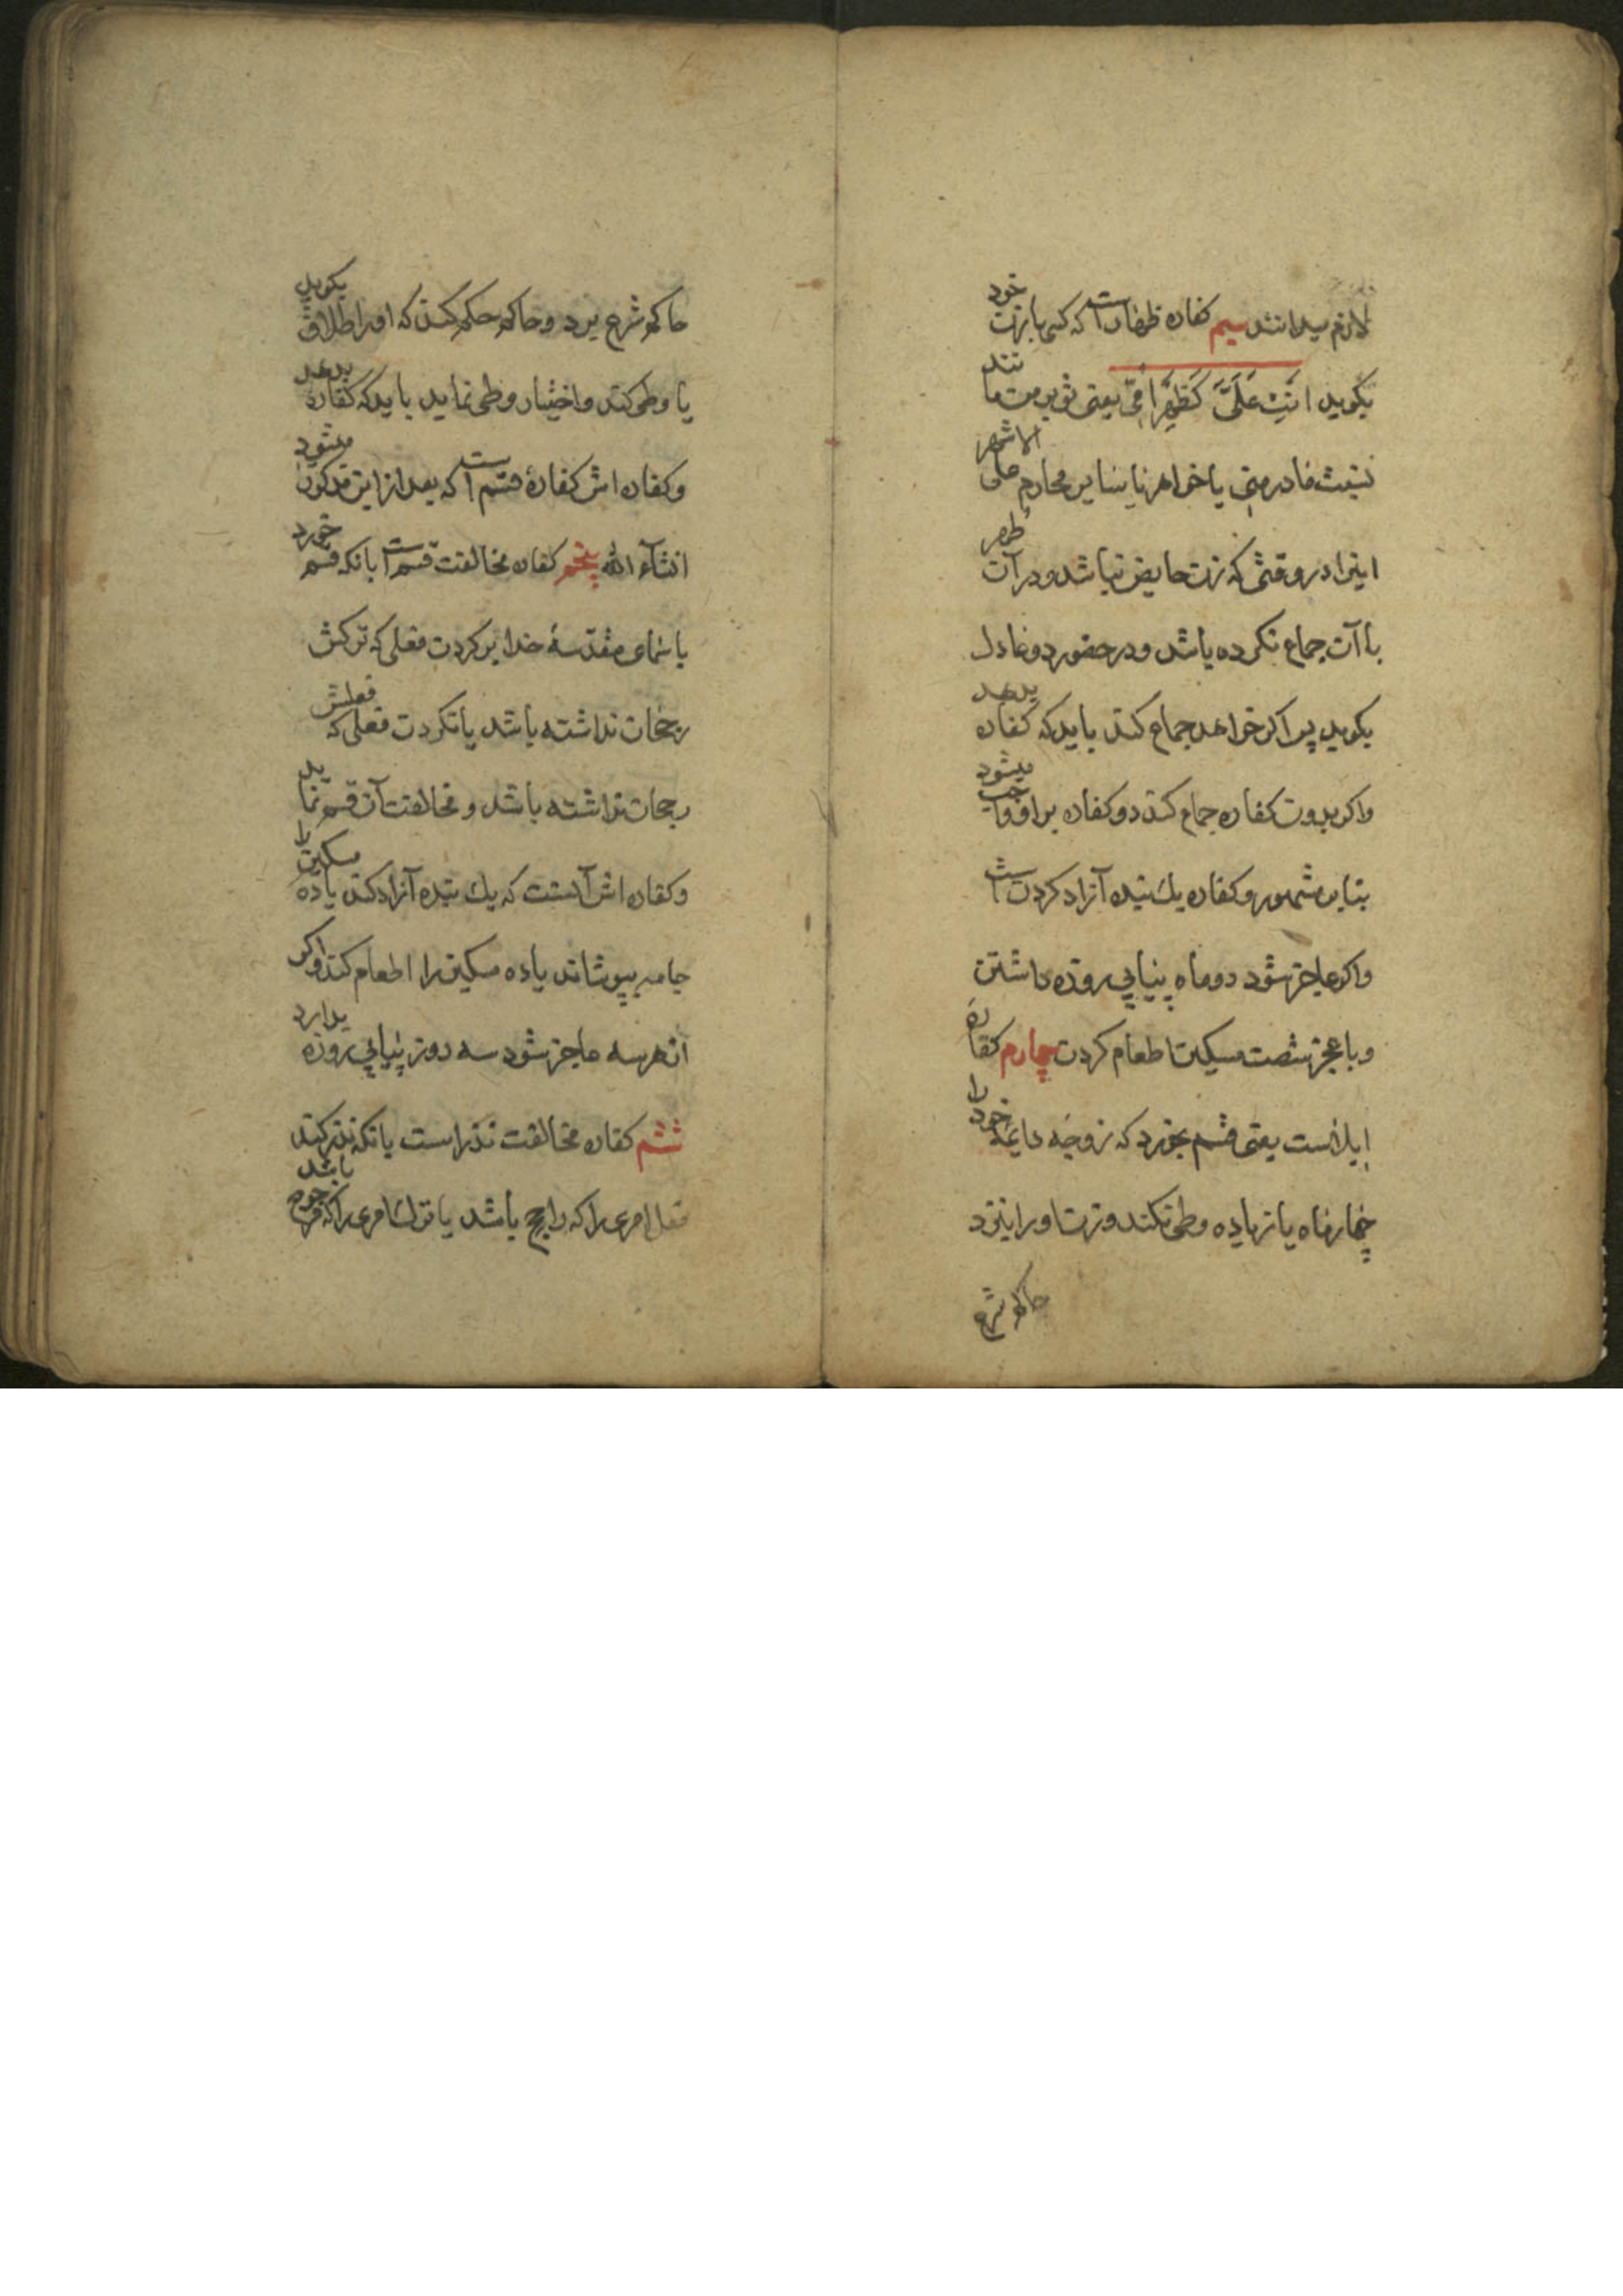 لازم میدانند سیم کفاره ظهار است که کسی با زن خود
بگوید انتِ عَلَیَّ کَظَهرِ اُمّی یعنی تو بر من مانند
پشت مادر منی یا خواهر یا سایر محارم علی الاشهر
اینرا در وقتی که زن حایض نباشد و در آن طهر
با آن جماع نکرده باشد و در حضور دو عادل
بگوید پس اگر خواهد جماع کند باید که کفاره بدهد
واگر بدون کفاره جماع کند دو کفاره بر او واجب میشود
بنابر مشهور و کفاره یک بنده آزاد کردن است
واگر عاجز شود دو ماه پیاپی روزه داشتن
و با عجز شصت مسکین اطعام کردن چهارم کفاره
ایلاست یعنی قسم بخورد که زوجه دایمه خود را
چهار ماه یا زیاده وطی نکند و زن او را بنزد
حاکم شرع
حاکم شرع برد و حاکم حکم کند که او را طلاق بگوید
یا وطی کند و اختیار وطی نماید باید که کفاره بدهد
و کفاره اش کفارهٔ قسم است که بعد از این مذکور میشود
انشآء الله پنجم کفاره مخالفت قسم است بانکه قسم خورد
باسمای مقدسهٔ خدا بر کردن فعلی که ترکش
رجحان نداشته باشد یا نکردن فعلی که فعلش
رجحان نداشته باشد و مخالفت آن قسم نماید
و کفاره اش آنست که یک بنده آزاد کند یا ده مسکین را
جامه بپوشاند یا ده مسکین را اطعام کند و اگر
از هر سه عاجز شود سه روز پیاپی روزه بدارد
ششم کفاره مخالفت نذر است بانکه نذر کند
فعل امری را که راجح باشد یا ترک امری را که مرجوح باشد